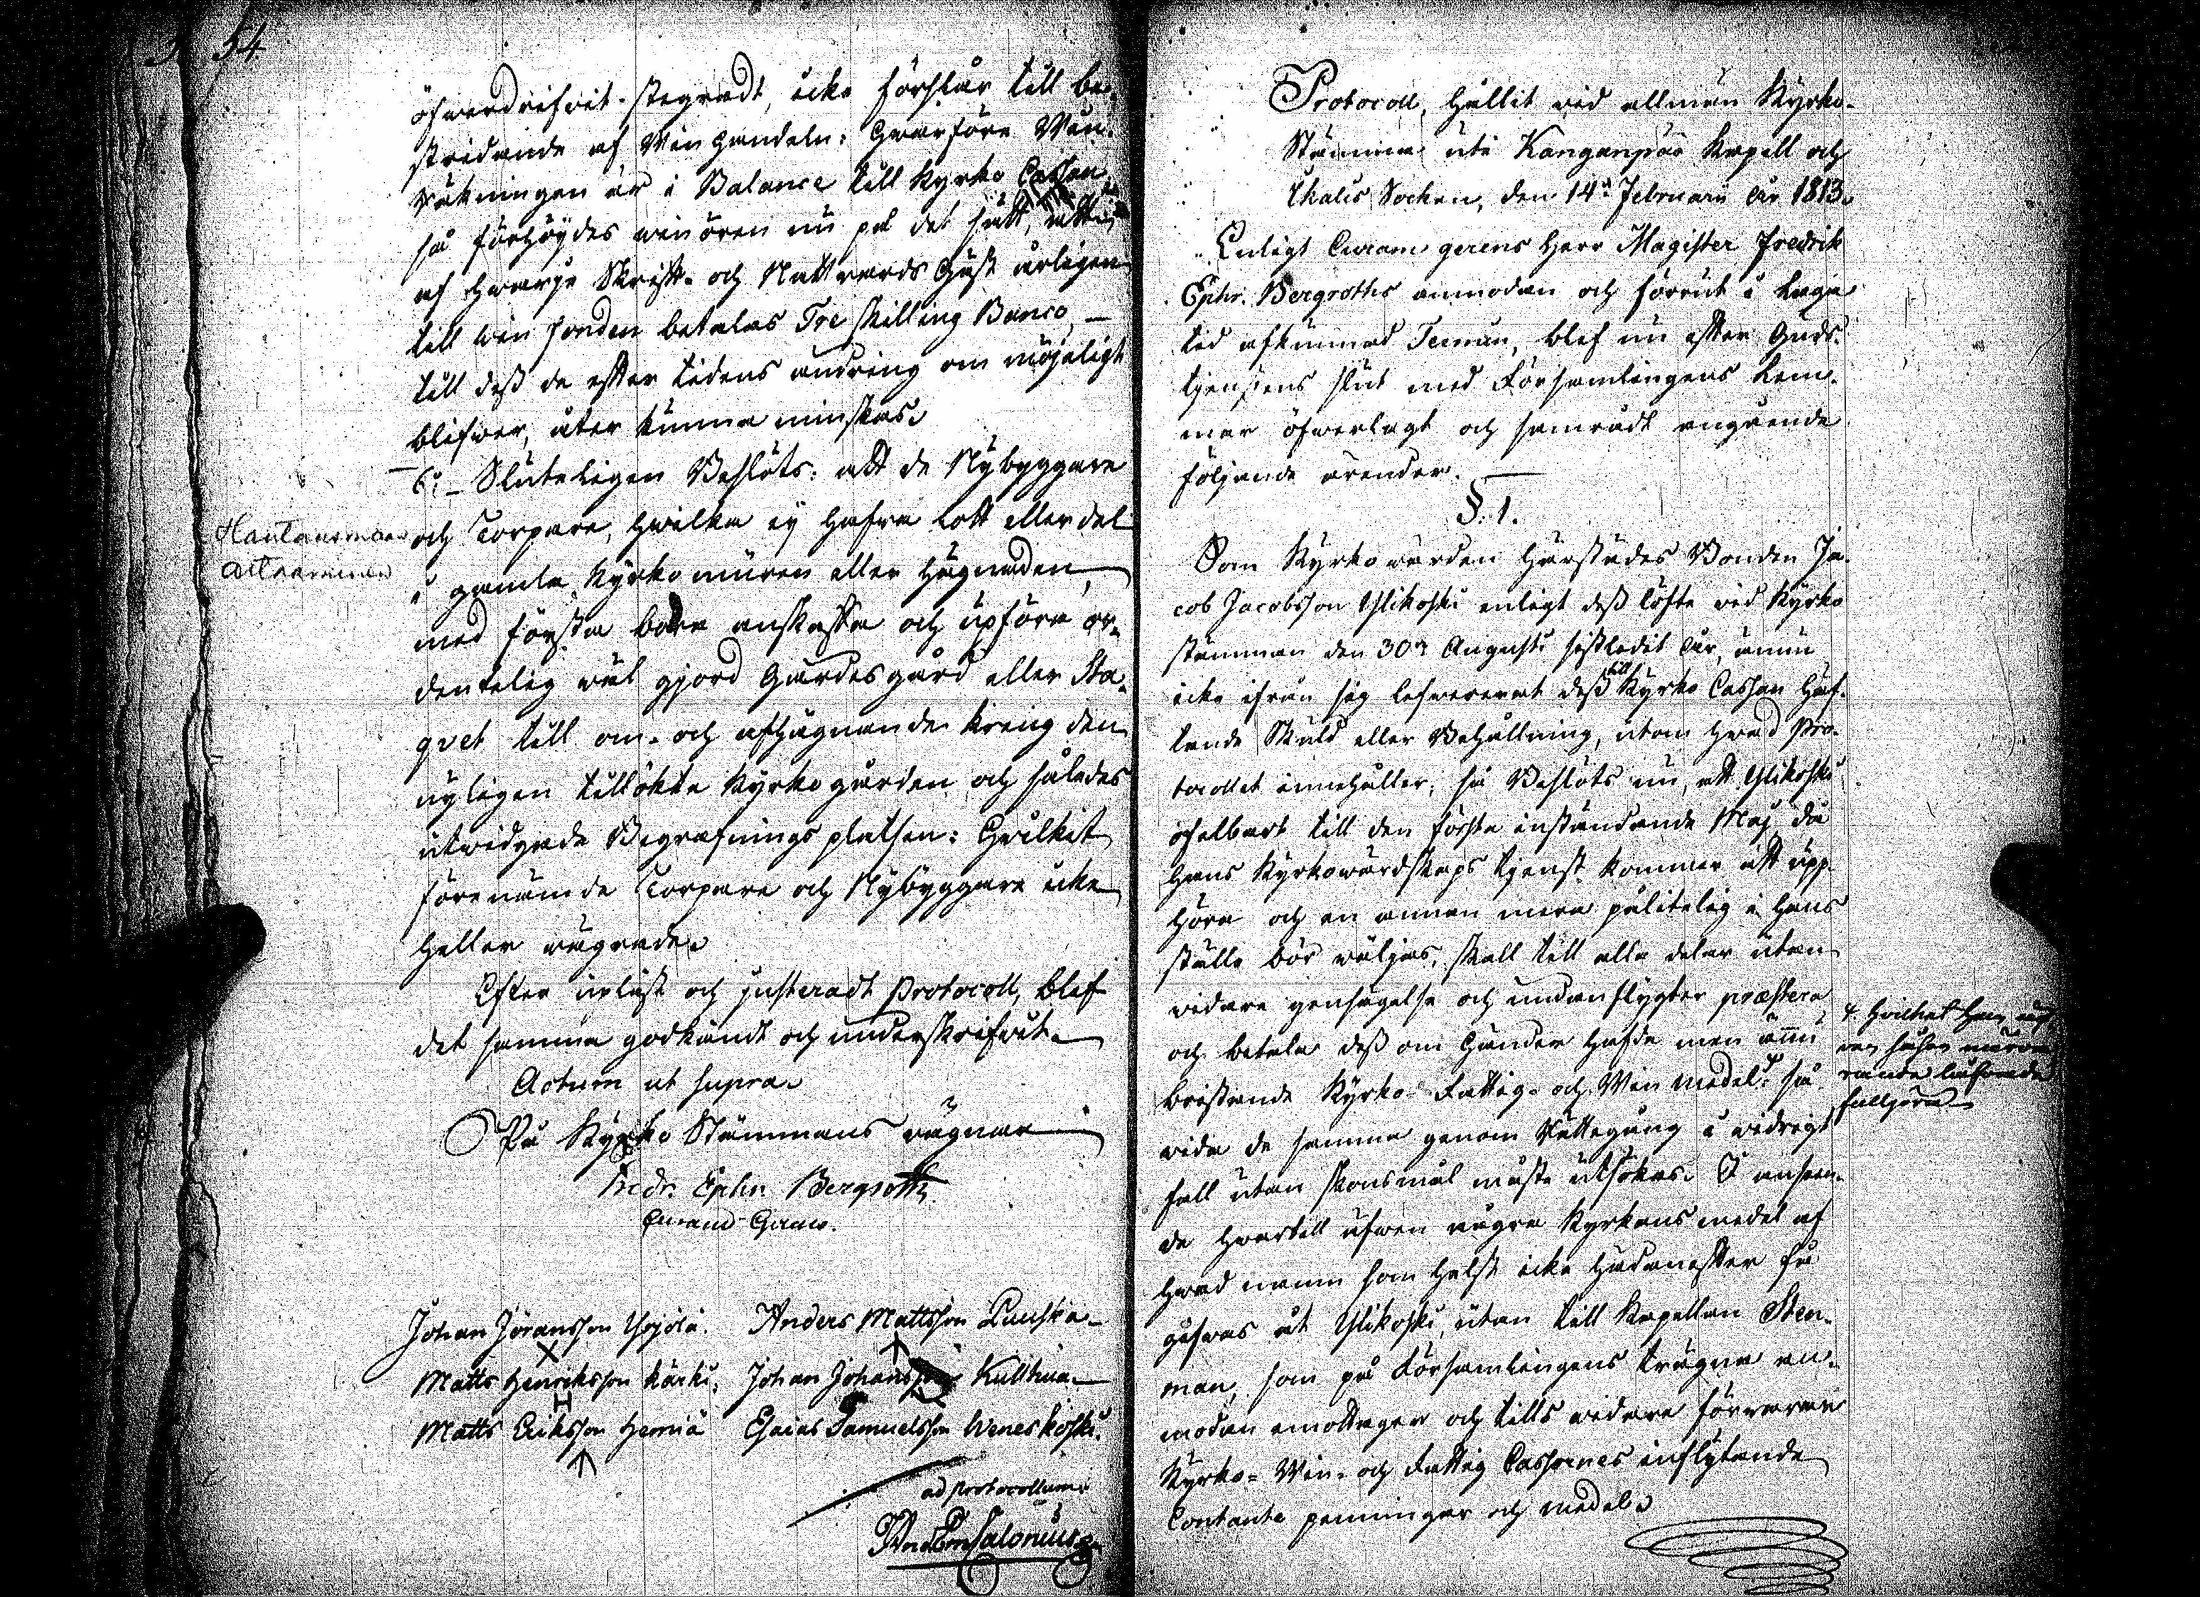 54.
öfwerdrifwit stegradt, icke förslår till be-
stridande af Win handeln: Hwarföre Win-
räkningen är i Balance till Kyrko Cassan,
så förhöÿdes winören nu på det sätt, att
af hwarje Skrift- och Nattwards Gäst årligen
till win fonden betalas Tre skilling Banco, —
till dess de efter tidens ändring om möjeligt
blifwer, åter kunna minskas.
6:o Sluteligen Beslöts: att de Nÿbyggare
och Torpare, hwilka eÿ hafwa lott eller del
i gamla Kyrko muren eller hägnaden,
med första böra anskaffa och upföra or-
dentelig wäl gjord Gärdesgård eller Sta-
qvet till om- och afhägnande kring den
nyligen tillökta Kyrkogården och således
utwidgade Begrafnings platsen: Hwilket
förenämde Torpare och Nÿbyggare icke
heller wägrade.
Efter upläst och justeradt Protocoll, blef
det samma godkändt och underskrifwit.
Actum ut supra.
På Kyrko Stämmans wägnar
Fredr. Ephr. Bergroth
Curam Gerens.
Hautausmaan
aitaaminen
Johan Jöransson Yrjölä. Anders Mattsson Puuska
Matts Henriksson Kärki. Johan Johansson Kullhua
Matts Eriksson Herniä Esaias Samuelsson Weneskoski.
ad protocollum
And Em Salonius
Protocoll, hållit wid allmän Kyrko-
Stämma uti Kanganpää Kapell och
Ikalis Socken, den 14de Februarii år 1813.
Enligt Curam gerens Herr Magister Fredrik
Ephr. Bergroths anmodan och förut i laga
tid afkunnad Termin, blef nu efter Guds-
tjenstens slut med Församlingens Lem-
mar öfwerlagt och samrådt angående
följande ärender. —
§. 1.
Som Kyrkowärden härstädes Bonden Ja-
cob Jacobsson Ylikoski enligt dess löfte wid Kyrko
stämman den 30de Augusti sistledit år, ännu
icke ifrån sig lefwererat dess till Kyrko Cassan häf-
tande Skuld eller Behållning, utom hwad Pro-
tocollet innehåller; så Beslöts nu, att Ylikoski
ofelbart till den första instundande Maj, då
hans Kyrkowärdskaps tjenst kommer att upp-
höra och en annan mera pålitelig i hans
ställe bör wäljas, skall till alla delar utan
widare gensägelse och undanflygter præstera
och betala dess om händer hafde men ännu
bristande Kyrko- Fattig- och Win medel: så
wida de samma genom Rättegång i widrigt
fall utan skonsmål måste utsökas. I anseen-
de hwartill äfwen några Kyrkans medel af
hwad namn som helst icke hädanefter få
gifwas åt Ylikoski, utan till Kapellan Sten-
man, som på Församlingens trägna an-
modan emottager och tills widare förwarar
Kyrko- Win- och Fattig Cassornes inflytande
Contante penningar och medel.
hwilket han
sjelf
rande lofwade
fullgöra